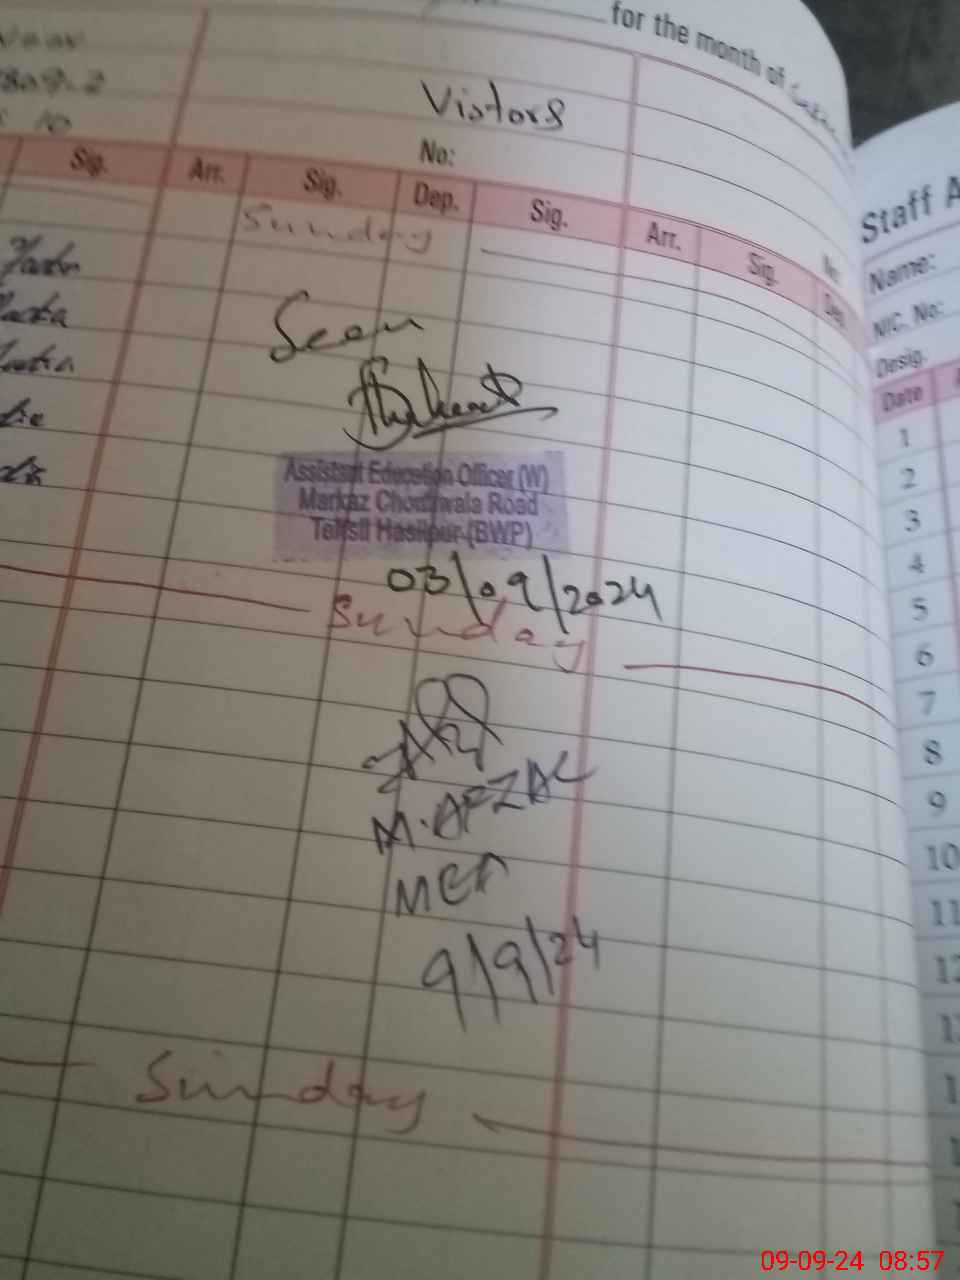 for the month of
Vistors
No:
Sig. Arr. Sig. Dep. Sig. Arr. Sig. Dep.
Sunday
Seen
Assistant Education Officer (W)
Markaz Chountwala Road
Tehsil Hasilpur (BWP)
03/09/2024
Sunday
M. AFZAL
MEA
9/9/24
Sunday
Staff A
Name:
NIC. No:
Desig.
Date
1
2
3
4
5
6
7
8
9
10
11
12
09-09-24 08:57